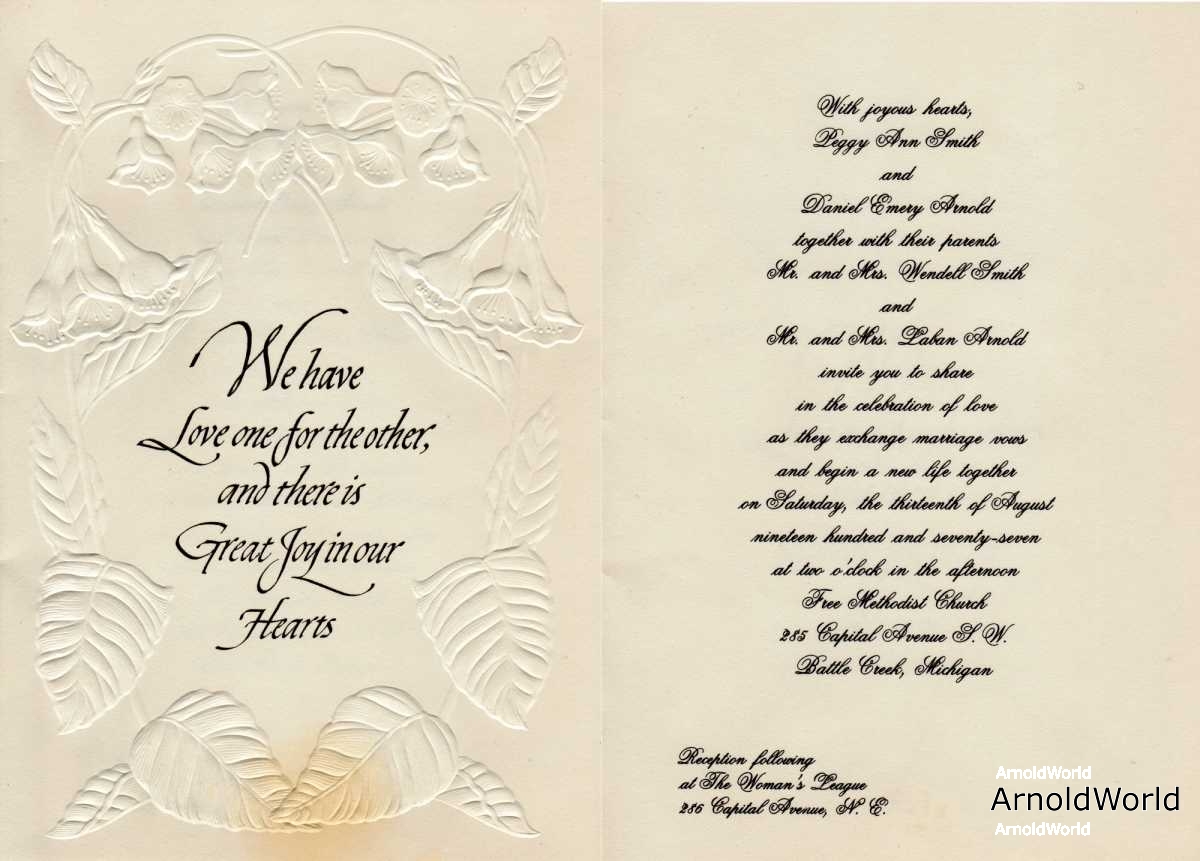 We have
Love one for the other,
and there is
Great Joy in our
Hearts
With joyous hearts,
Peggy Ann Smith
and
Daniel Emery Arnold
together with their parents
Mr. and Mrs. Wendell Smith
and
Mr. and Mrs. Laban Arnold
invite you to share
in the celebration of love
as they exchange marriage vows
and begin a new life together
on Saturday, the thirteenth of August
nineteen hundred and seventy-seven
at two o'clock in the afternoon
Free Methodist Church
285 Capital Avenue S. W.
Battle Creek, Michigan
Reception following
at The Woman's League
286 Capital Avenue, N. E.
ArnoldWorld
ArnoldWorld
ArnoldWorld